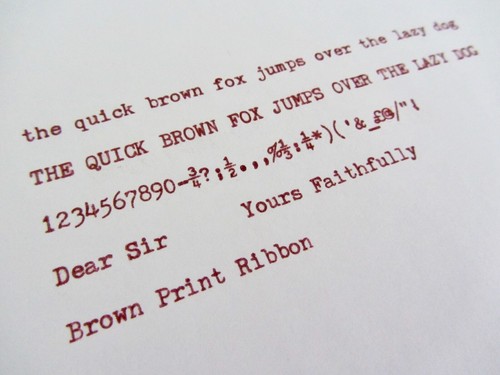 the quick brown fox jumps over the lazy dog
THE QUICK BROWN FOX JUMPS OVER THE LAZY DOG
1234567890-¾?;½.,,%⅓:¼*)('&_£@/"\
Dear Sir Yours Faithfully
Brown Print Ribbon